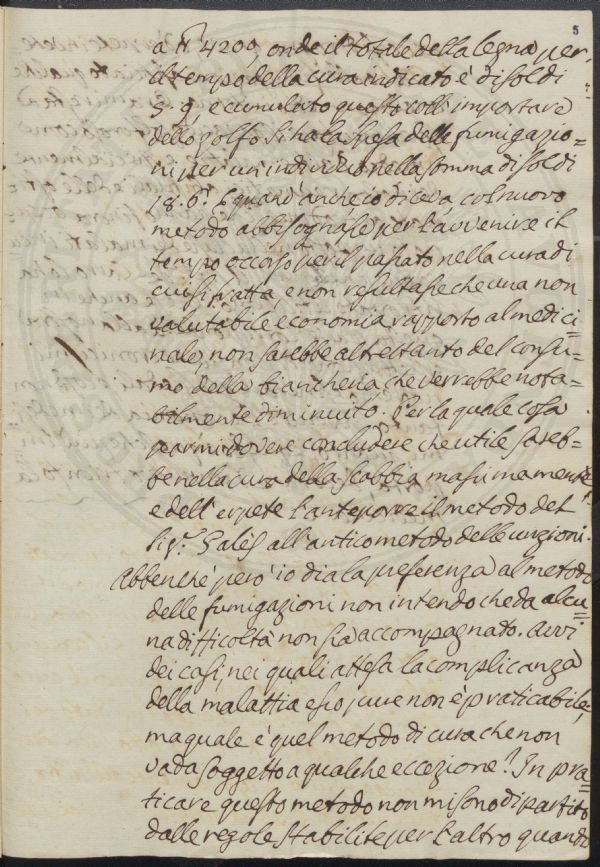 5
a n.° 4209, onde il totale della legna per
il tempo della cura indicato è di soldi
5. 9, e cumulato questo coll' importare
dello zolfo si ha la spesa delle fumigazio=
ni per un individuo nella somma di soldi
18. 6. E quand'anche io diceva, col nuovo
metodo abbisognase per l'avvenire il
tempo occorso per il passato nella cura di
cui si tratta, e non resultase che una non
valutabile economia rapporto al medici=
nale, non sarebbe altrettanto del consu=
mo della biancheria, che verrebbe nota=
bilmente diminuito. Per la qual cosa
parmi dovere concludere che utile sareb=
be nella cura della scabbia massimamente
e dell'erpete l'anteporre il metodo del
Sig.r Galés all'antico metodo delle unzioni.
Abbenchè però io dia la preferenza al metodo
delle fumigazioni non intendo che da alcu=
na difficoltà non sia accompagnato. Avvi
dei casi, nei quali attesa la complicanza
della malattia esso pure non è praticabile;
ma quale è quel metodo di cura che non
vada soggetto a qualche eccezione? In pra=
ticare questo metodo non mi sono dipartito
dalle regole stabilite per l'altro quando